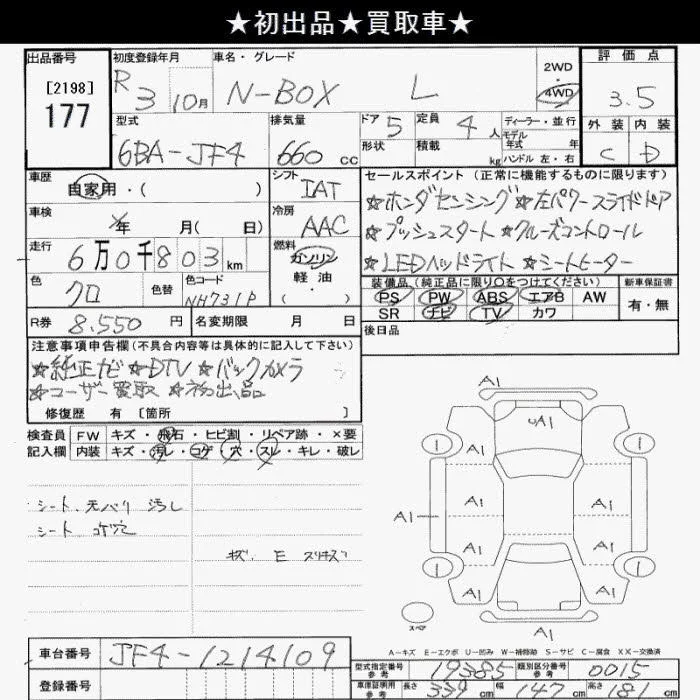 ★初出品★買取車★
出品番号
[2198]
177
初度登録年月
R 3 10月
車名・グレード
N-BOX L
2WD
・
4WD
評価点
3.5
外装 内装
C D
型式
6BA-JF4
排気量
660 cc
ドア 5
形状
定員 4 人
積載 kg
ディーラー・並行
モデル年式 年
ハンドル 左・右
車歴
自家用・( )
シフト
IAT
セールスポイント(正常に機能するものに限ります)
☆ホンダセンシング☆左パワースライドドア
☆プッシュスタート☆クルーズコントロール
☆LEDヘッドライト☆シートヒーター
車検
年 月( 日)
冷房
AAC
走行
6万0千803km
燃料
ガソリン
軽油
・( )
色
クロ
色替
色コード
NH731P
装備品(純正品に限り○をつけてください)
PS PW ABS エアB AW
SR ナビ TV カワ
新車保証書
有・無
R券 8,550 円
名変期限 月 日
後日品
注意事項申告欄(不具合内容等は具体的に記入して下さい)
☆純正ナビ☆DTV☆バックカメラ
☆ユーザー買取 ☆初出品
修復歴 有[箇所 ]
検査員 FW キズ・飛石・ヒビ割・リペア跡・×要
記入欄 内装 キズ・汚レ・コゲ・穴・スレ・キレ・破レ
シート、天バリ 汚し
シート コゲ穴
キズ、E スリキズ
A1
A1
1 1
A1 A1
A1 A1 A1
A1 A1
1 1
A1
スペア
A-キズ E-エクボ U-凹み W-補修跡 S-サビ C-腐食 XX-交換済
車台番号 JF4-1214109
登録番号
型式指定番号 参考 19385 類別区分番号 参考 0015
車庫証明用 参考 長さ 339 cm 幅 147 cm 高さ 181 cm